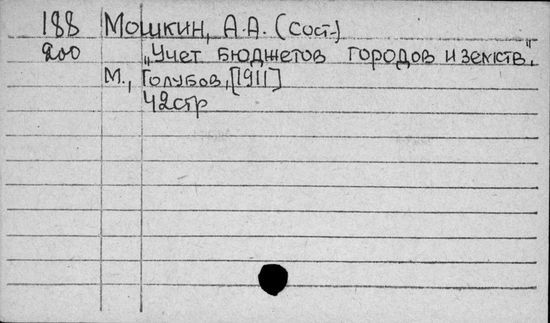 188 Мошкин, А.А. (сост.)
200 „Учет бюджетов городов и земств".
М., Голубов, [1911]
42стр